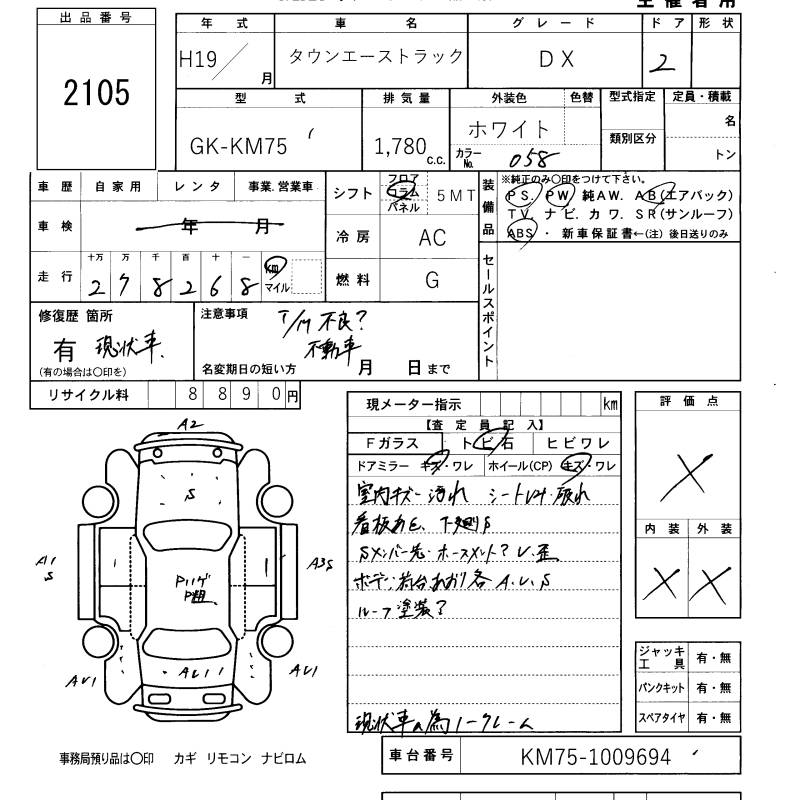 出品番号
2105
年 式 車 名 グレード ドア 形状
H19/ 月 タウンエーストラック DX 2
型 式 排気量 外装色 色替 型式指定 定員・積載
GK-KM75 1,780 c.c. ホワイト 類別区分 名
カラーNo. 058 トン
車歴 自家用 レンタ 事業.営業車
車検 年 月
走行 十万 万 千 百 十 一
2 7 8 2 6 8 km マイル
シフト フロア コラム パネル 5MT
冷房 AC
燃料 G
装備品 ※純正のみ○印をつけて下さい。
PS. PW 純AW. AB(エアバック)
TV. ナビ. カワ. SR(サンルーフ)
ABS ・ 新車保証書←(注) 後日送りのみ
セールスポイント
修復歴 箇所
有 現状車.
(有の場合は○印を)
注意事項 T/M 不良?
不動車
名変期日の短い方 月 日まで
リサイクル料 8 8 9 0 円
現メーター指示 km
【査 定 員 記 入】
Fガラス トビ石 ヒビワレ
ドアミラー キズ・ワレ ホイール(CP) キズ・ワレ
室内キズ 汚れ シート 破れ
看板あと、下廻りS
Sメンバー先・ホースメント? U.歪
ボデー 荷台あおり各 A.U.S
ルーフ塗装?
現状車の為ノークレーム
評価点
×
内装 外装
× ×
ジャッキ工具 有・無
パンクキット 有・無
スペアタイヤ 有・無
A2
S
A1
S
1
1
A3S
AU1
AU11
AU1
事務局預り品は○印 カギ リモコン ナビロム
車台番号 KM75-1009694